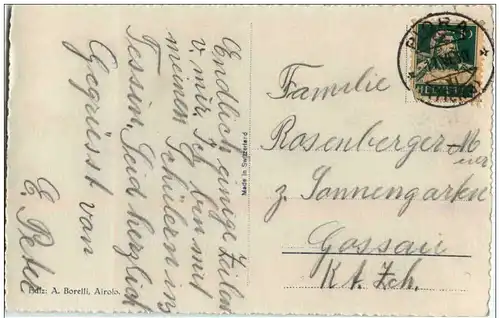 Endlich einige Zeilen
v. mir. Ich ben mit
meinen Schülern im
Tessin. Seid herzlich
Gegrüsst von
E. Peter
Ediz: A. Borelli, Airolo.
Made in Switzerland
PIORA
HELVETIA
Familie
Rosenberger-M
z. Sonnengarten
Gossau
Kt. Zch.